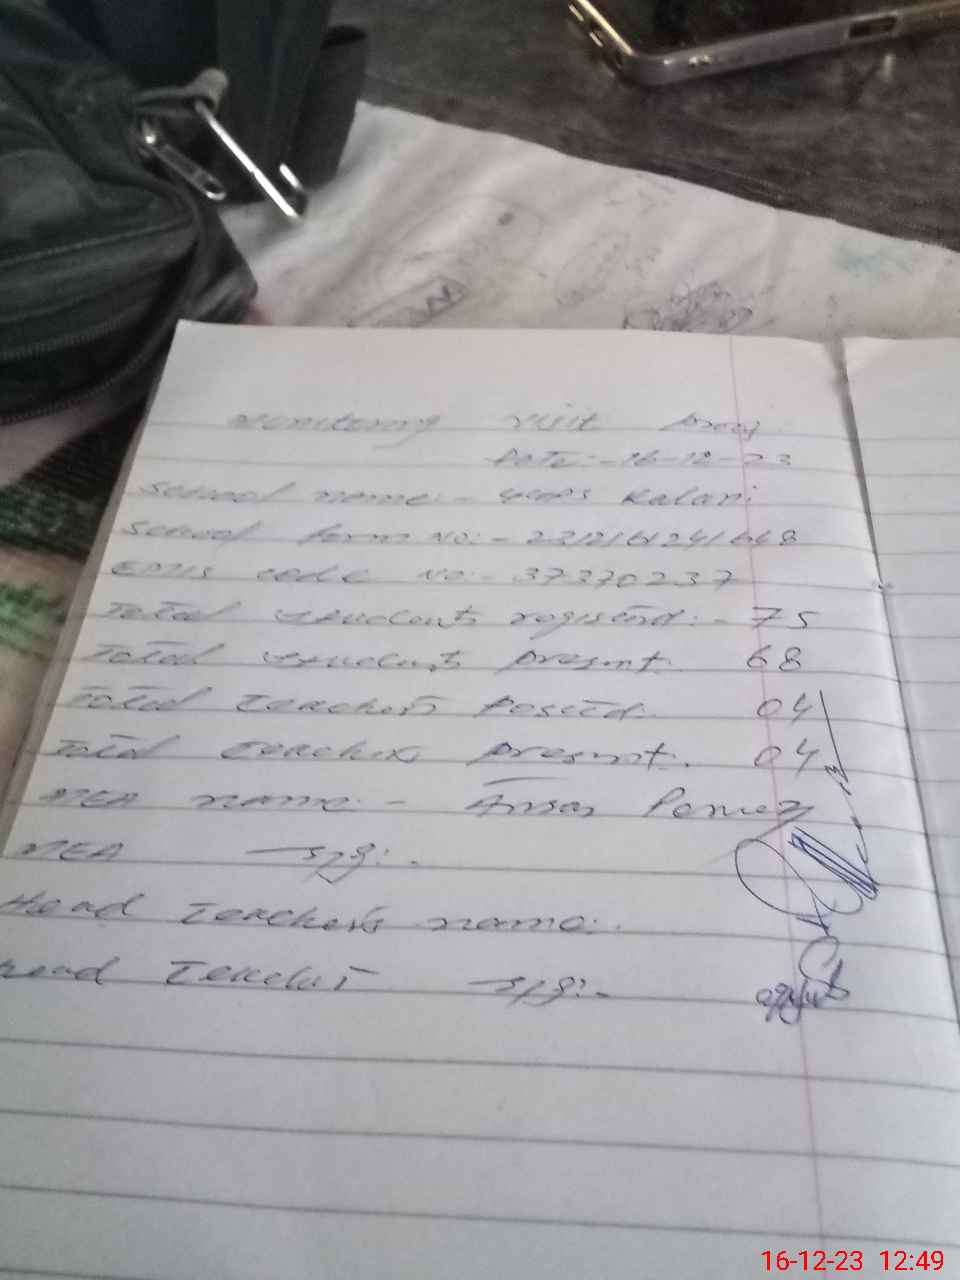 Monitoring visit proof
Date:- 16-12-23
School name:- Kalari
School form No:-
EMIS code No:- 37370237
Total students registrd:- 75
Total students present. 68
Total teachers Posted. 04
Total teachers present. 04
MEA name:- Ansar Pervez
MEA sig:-
Head teachers name:-
Head Teacher sig:-
16-12-23 12:49